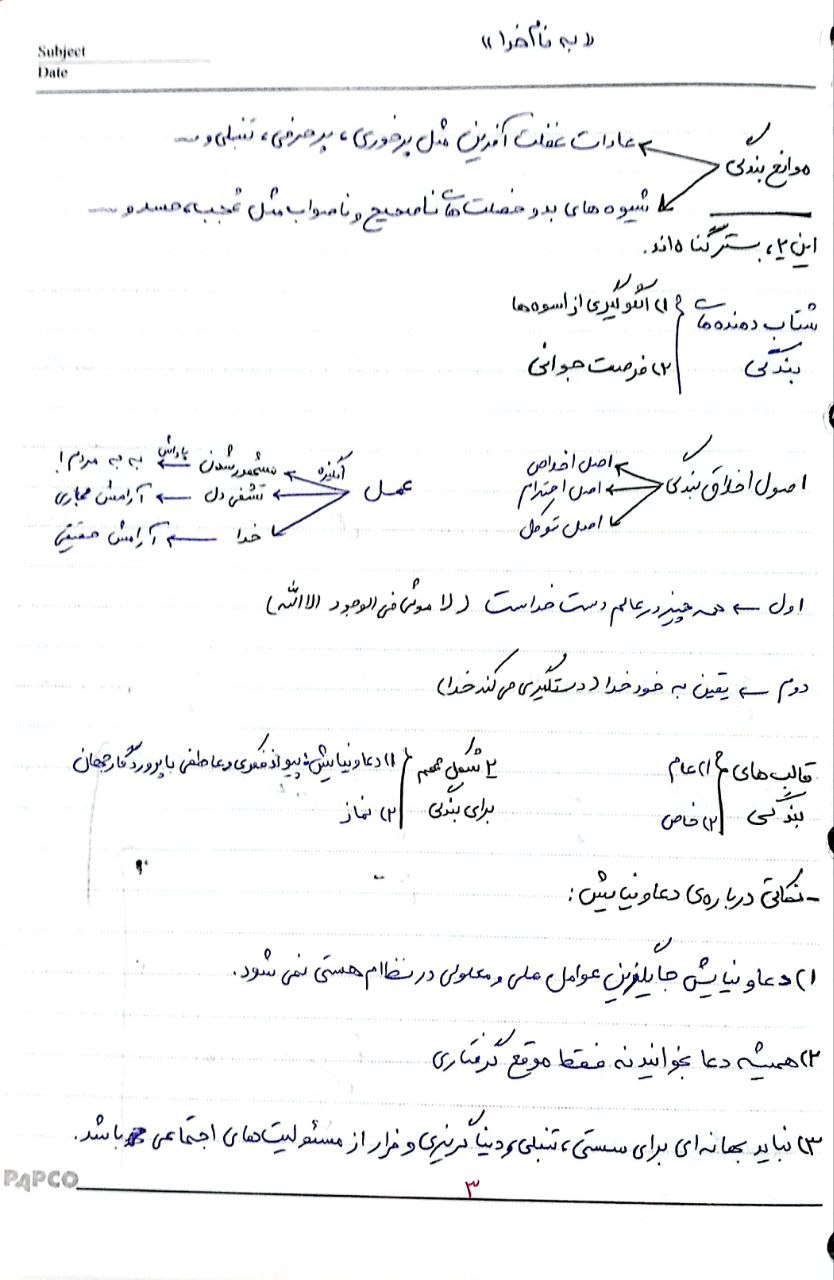 «به نام خدا»
Subject
Date
موانع بندگی
عادات غفلت آفرین مثل پرخوری، پرحرفی، تنبلی و ...
شیوه های بد و خصلت های ناصحیح و ناصواب مثل عُجب، حسد و ...
این ۲، بستر گناه اند.
شتاب دهنده های بندگی
۱) الگوگیری از اسوه ها
۲) فرصت جوانی
اصول اخلاق بندگی
اصل اخلاص
اصل احترام
اصل توکل
عمل انگیزه
مشهور شدن ← پاداش به به مردم!
تشفی دل ← آرامش مجازی
خدا ← آرامش حقیقی
اول ← همه چیز در عالم دست خداست (لا موثر فی الوجود الا الله)
دوم ← یقین به خود خدا (دستگیری می کند خدا)
قالب های بندگی
۱) عام
۲) خاص
۲ شکل مهم برای بندگی
۱) دعا و نیایش: پیوند فکری و عاطفی با پروردگار جهان
۲) نماز
- نکاتی درباره ی دعا و نیایش:
۱) دعا و نیایش جایگزین عوامل علی و معلولی در نظام هستی نمی شود.
۲) همیشه دعا بخوانید نه فقط موقع گرفتاری
۳) نباید بهانه ای برای سستی، تنبلی، دنیا گریزی و فرار از مسئولیت های اجتماعی باشد.
PAPCO
۳